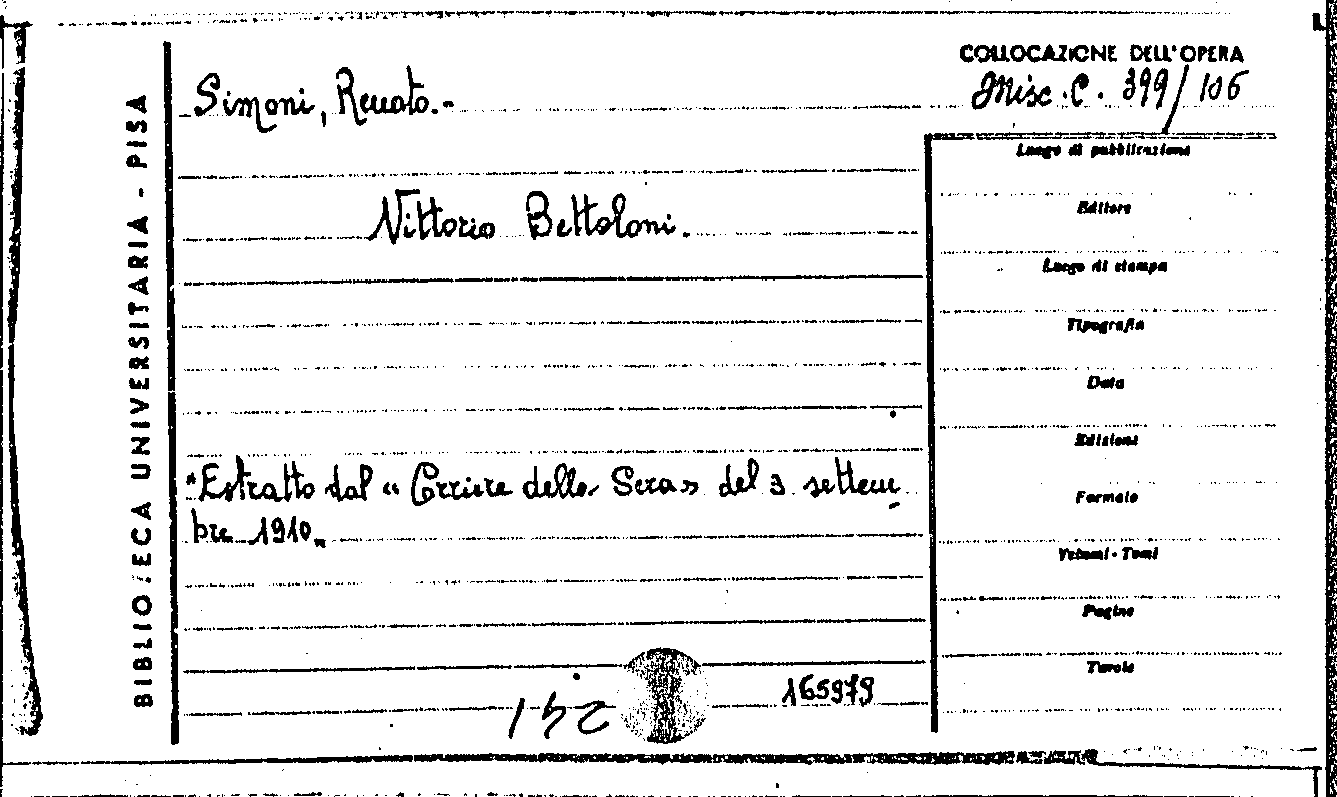 COLLOCAZIONE DELL'OPERA
Simoni, Renato.-
Misc. C. 399/106
BIBLIOTECA UNIVERSITARIA - PISA
Vittorio Betteloni.
"Estratto dal « Corriere della Sera» del 3 settem
bre 1910„
165979
Luogo di pubblicazione
Editore
Luogo di stampa
Tipografia
Data
Edizione
Formato
Volumi - Tomi
Pagine
Tavole